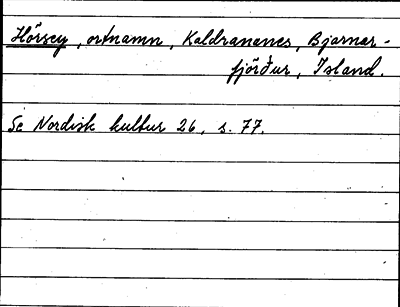 Hörsey, ortnamn, Kaldrananes, Bjarnar-
fjörður, Island.
Se Nordisk kultur 26, s. 77.